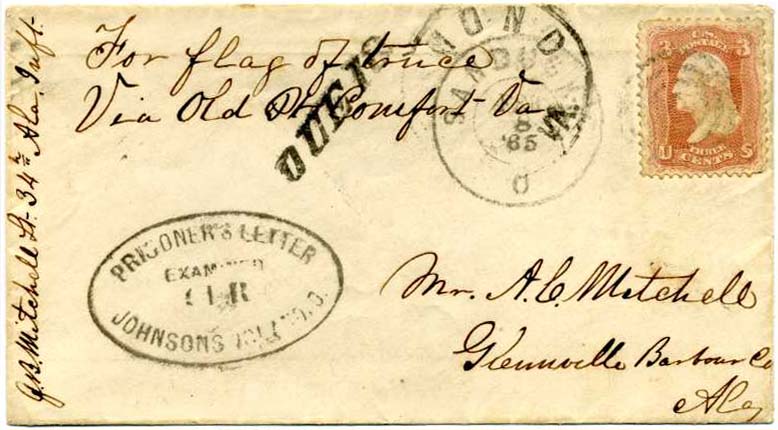 For flag of truce
Via Old Pt Comfort Va
J.B. Mitchell Lt. 34th Ala. Inft.
MOND
VA.
SANDU
8
'65
O
DUE 10
U.S. POSTAGE
3 3
THREE
CENTS
U S
PRISONER'S LETTER
EXAMINED
JOHNSONS ISLAND. O.
Mr. A.C. Mitchell
Glennville Barbour Co
Ala